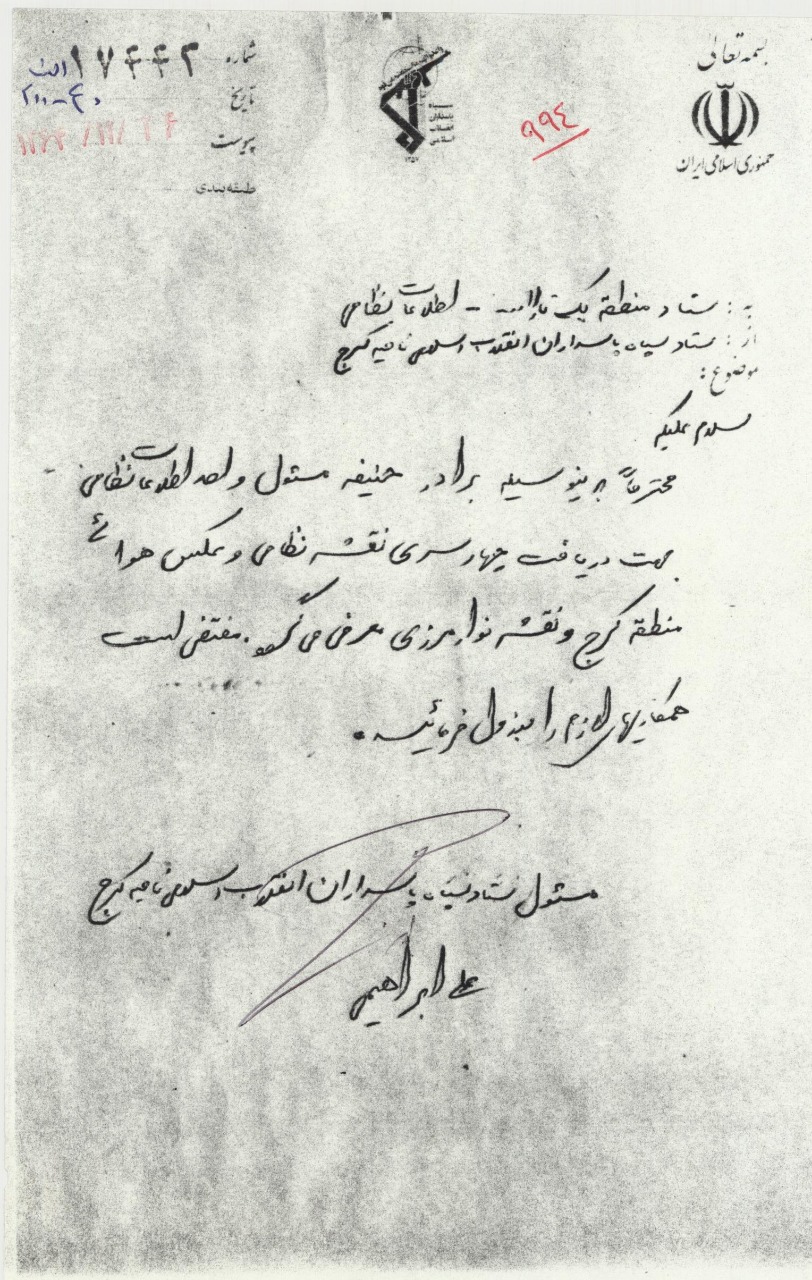 بسمه تعالی
جمهوری اسلامی ایران
۹۹٤
سپاه
پاسداران
انقلاب
اسلامی
۱۳۵۷
شماره ۱۷۴۴۲ الف
تاریخ
پیوست
طبقه‌بندی
به : ستاد منطقه یک - اطلاعات نظامی
از : ستاد سپاه پاسداران انقلاب اسلامی ناحیه کرج
موضوع :
سلام علیکم
محترماً بدینوسیله برادر حنیفه مسئول واحد اطلاعات نظامی
جهت دریافت چهار سری نقشه نظامی و عکس هوائی
منطقه کرج و نقشه نوار مرزی معرفی می‌گردد. مقتضی است
همکاریهای لازم را مبذول فرمائید.
مسئول ستاد سپاه پاسداران انقلاب اسلامی ناحیه کرج
علی ابراهیمی